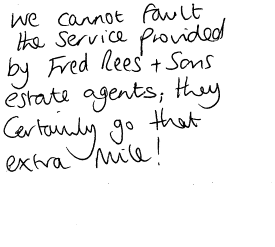 we cannot fault
the service provided
by Fred Rees + Sons
estate agents; they
Certainly go that
extra mile!